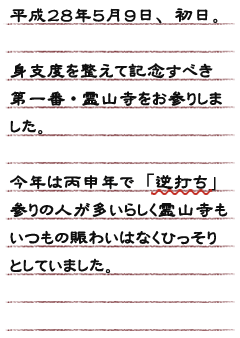 平成２８年５月９日、初日。
身支度を整えて記念すべき
第一番・霊山寺をお参りしま
した。
今年は丙申年で「逆打ち」
参りの人が多いらしく霊山寺も
いつもの賑わいはなくひっそり
としていました。